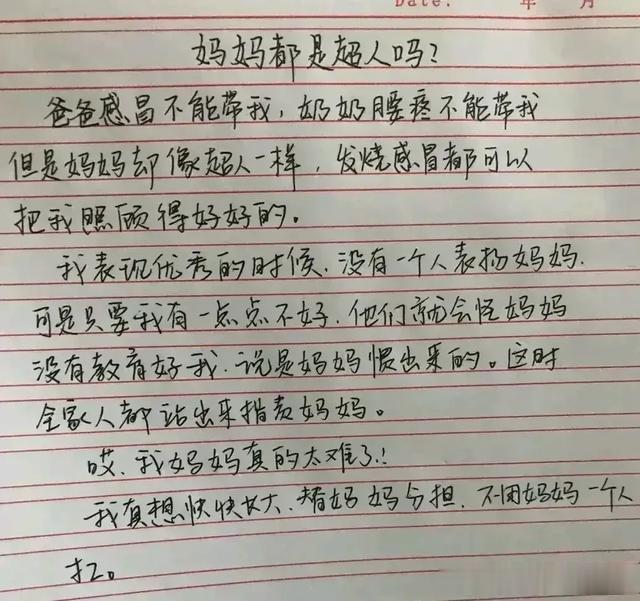 Date. 年 月
妈妈都是超人吗？
爸爸感冒不能带我，奶奶腰疼不能带我
但是妈妈却像超人一样，发烧感冒都可以
把我照顾得好好的。
我表现优秀的时候，没有一个人表扬妈妈．
可是只要我有一点点不好．他们就会怪妈妈
没有教育好我．说是妈妈惯出来的。这时
全家人都站出来指责妈妈。
哎．我妈妈真的太难了！
我真想快快长大．替妈妈分担．不用妈妈一个人
扛。